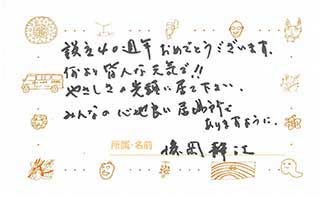 設立40週年 おめでとうございます。
何より皆んな元気で!!
やさしさの先頭に居て下さい。
みんなの心地良い居場所で
ありますように。
所属・名前